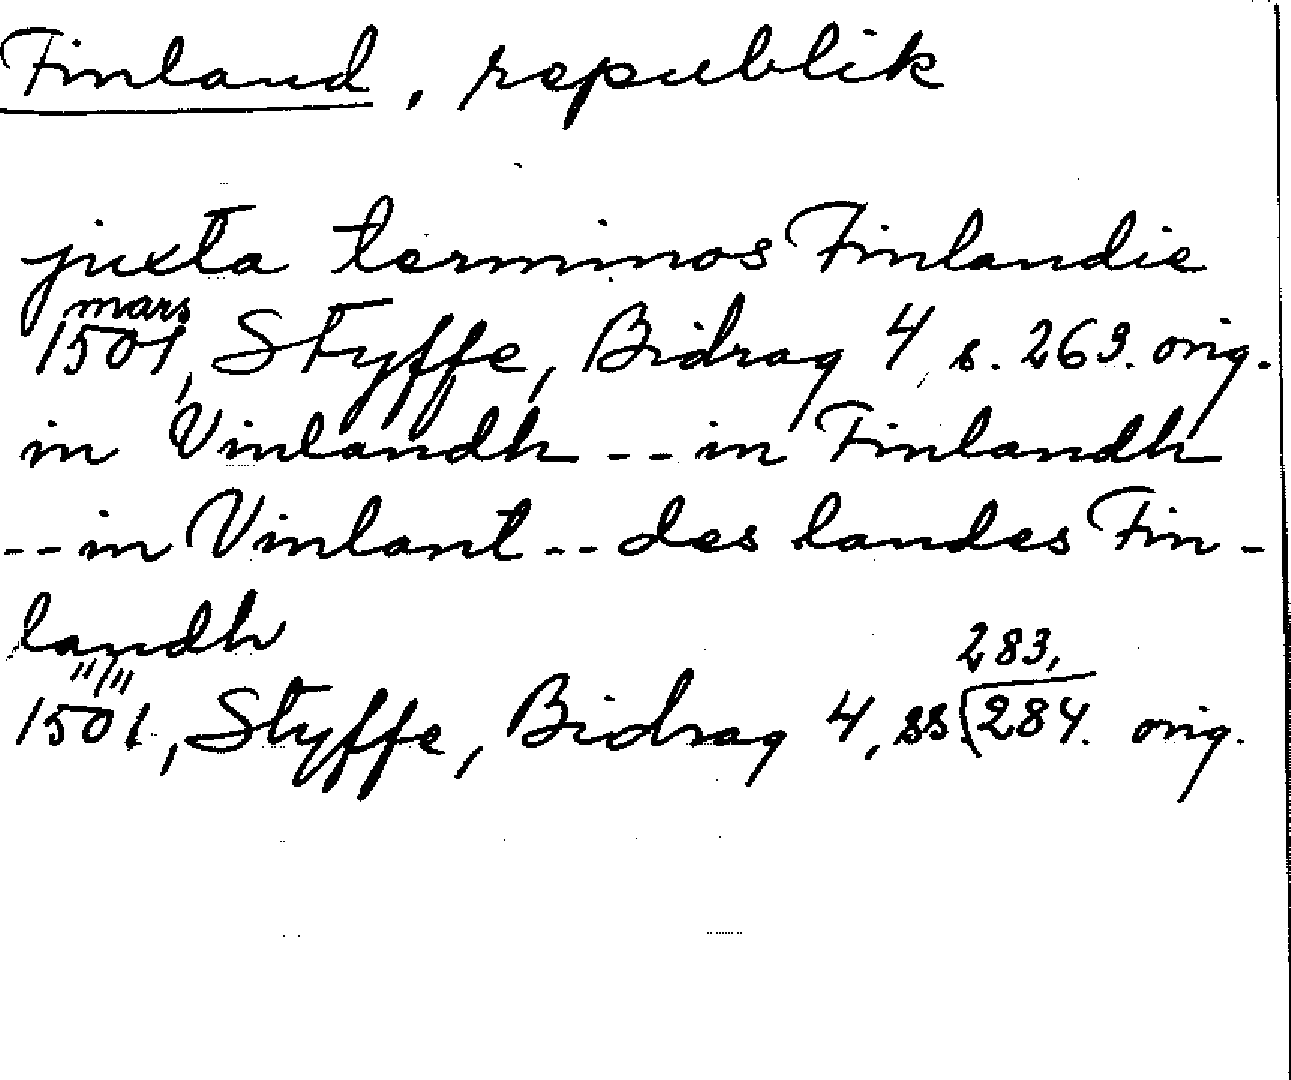 Finland, republik
juxta terminos Finlandie
mars
1501, Styffe, Bidrag 4 s. 269. orig.
in Vinlandh -- in Finlandh
-- in Vinlant -- des landes Fin-
landh
11/11 283,
1501, Styffe, Bidrag 4, ss. 284. orig.